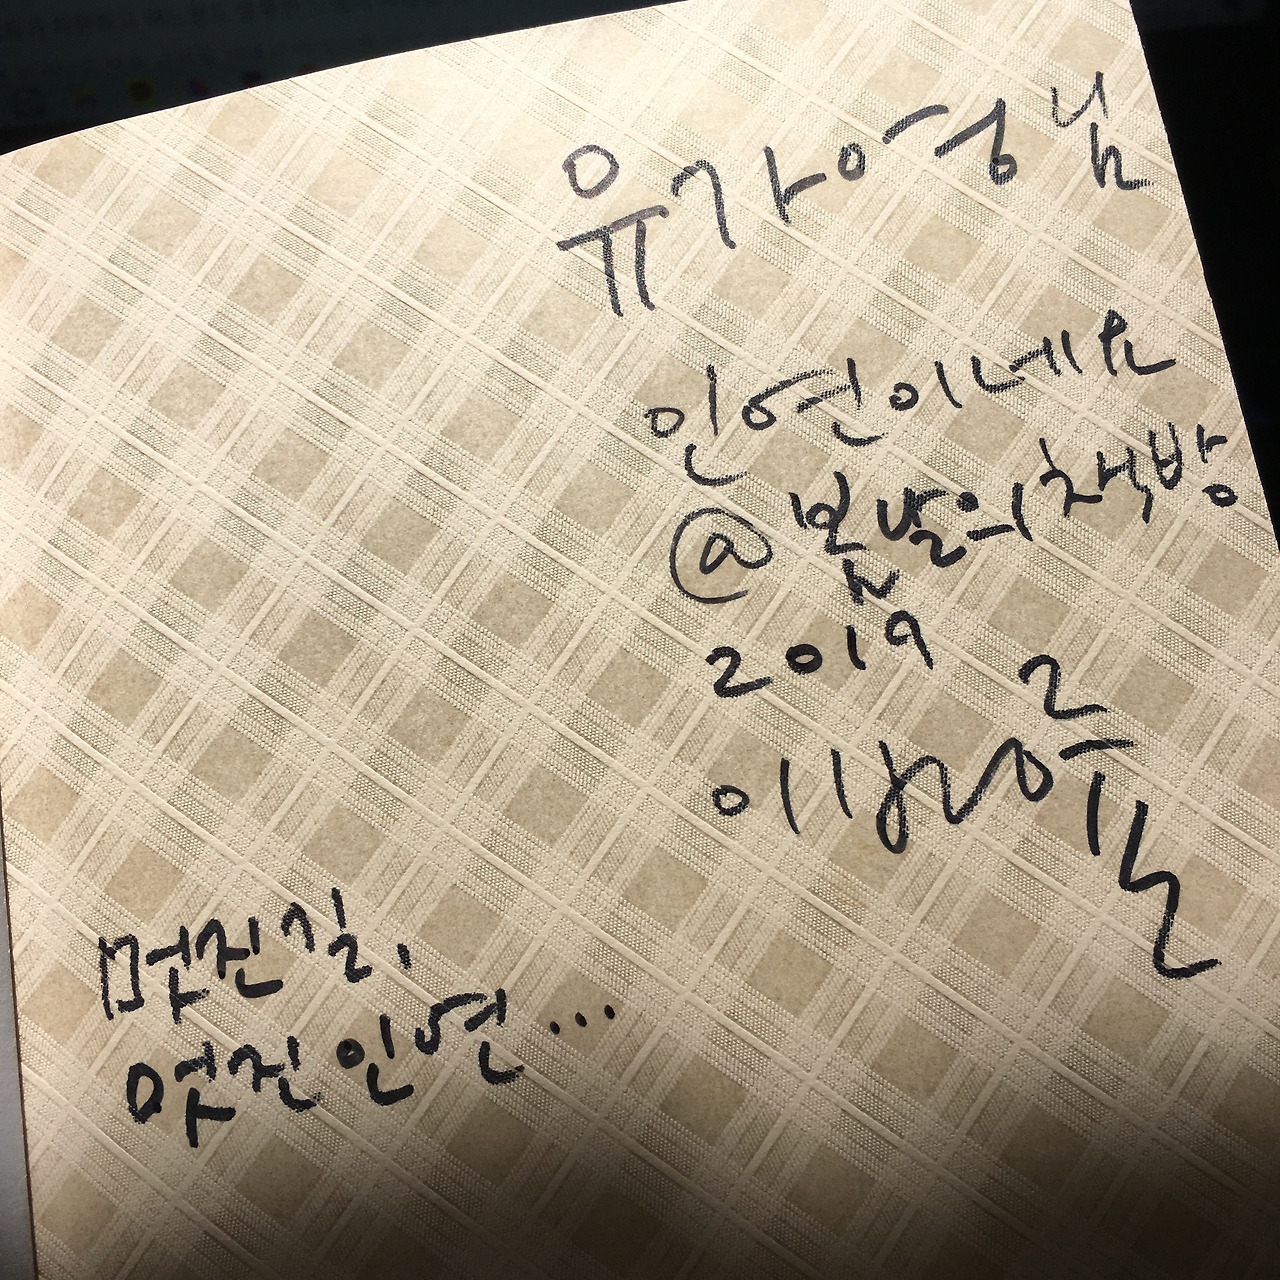 유가영님
인연이네요
@봄날의책방
2019 2
멋진길,
멋진인연...